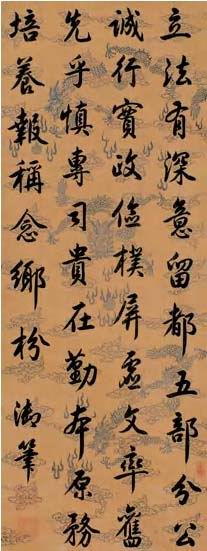 立法有深意留都五部分公
誠行實政儉樸屏虛文率舊
先乎慎專司貴在勤本原務
培養報稱念鄉枌 御筆